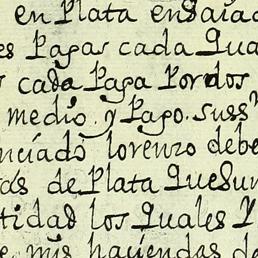 en Plata ensaiad
es Pagas cada Qua
cada Paga Por dos
medio. y Pago. suss
enciado lorenzo debe
ras de Plata que sun
tidad los Quales y
e mis haciendas de